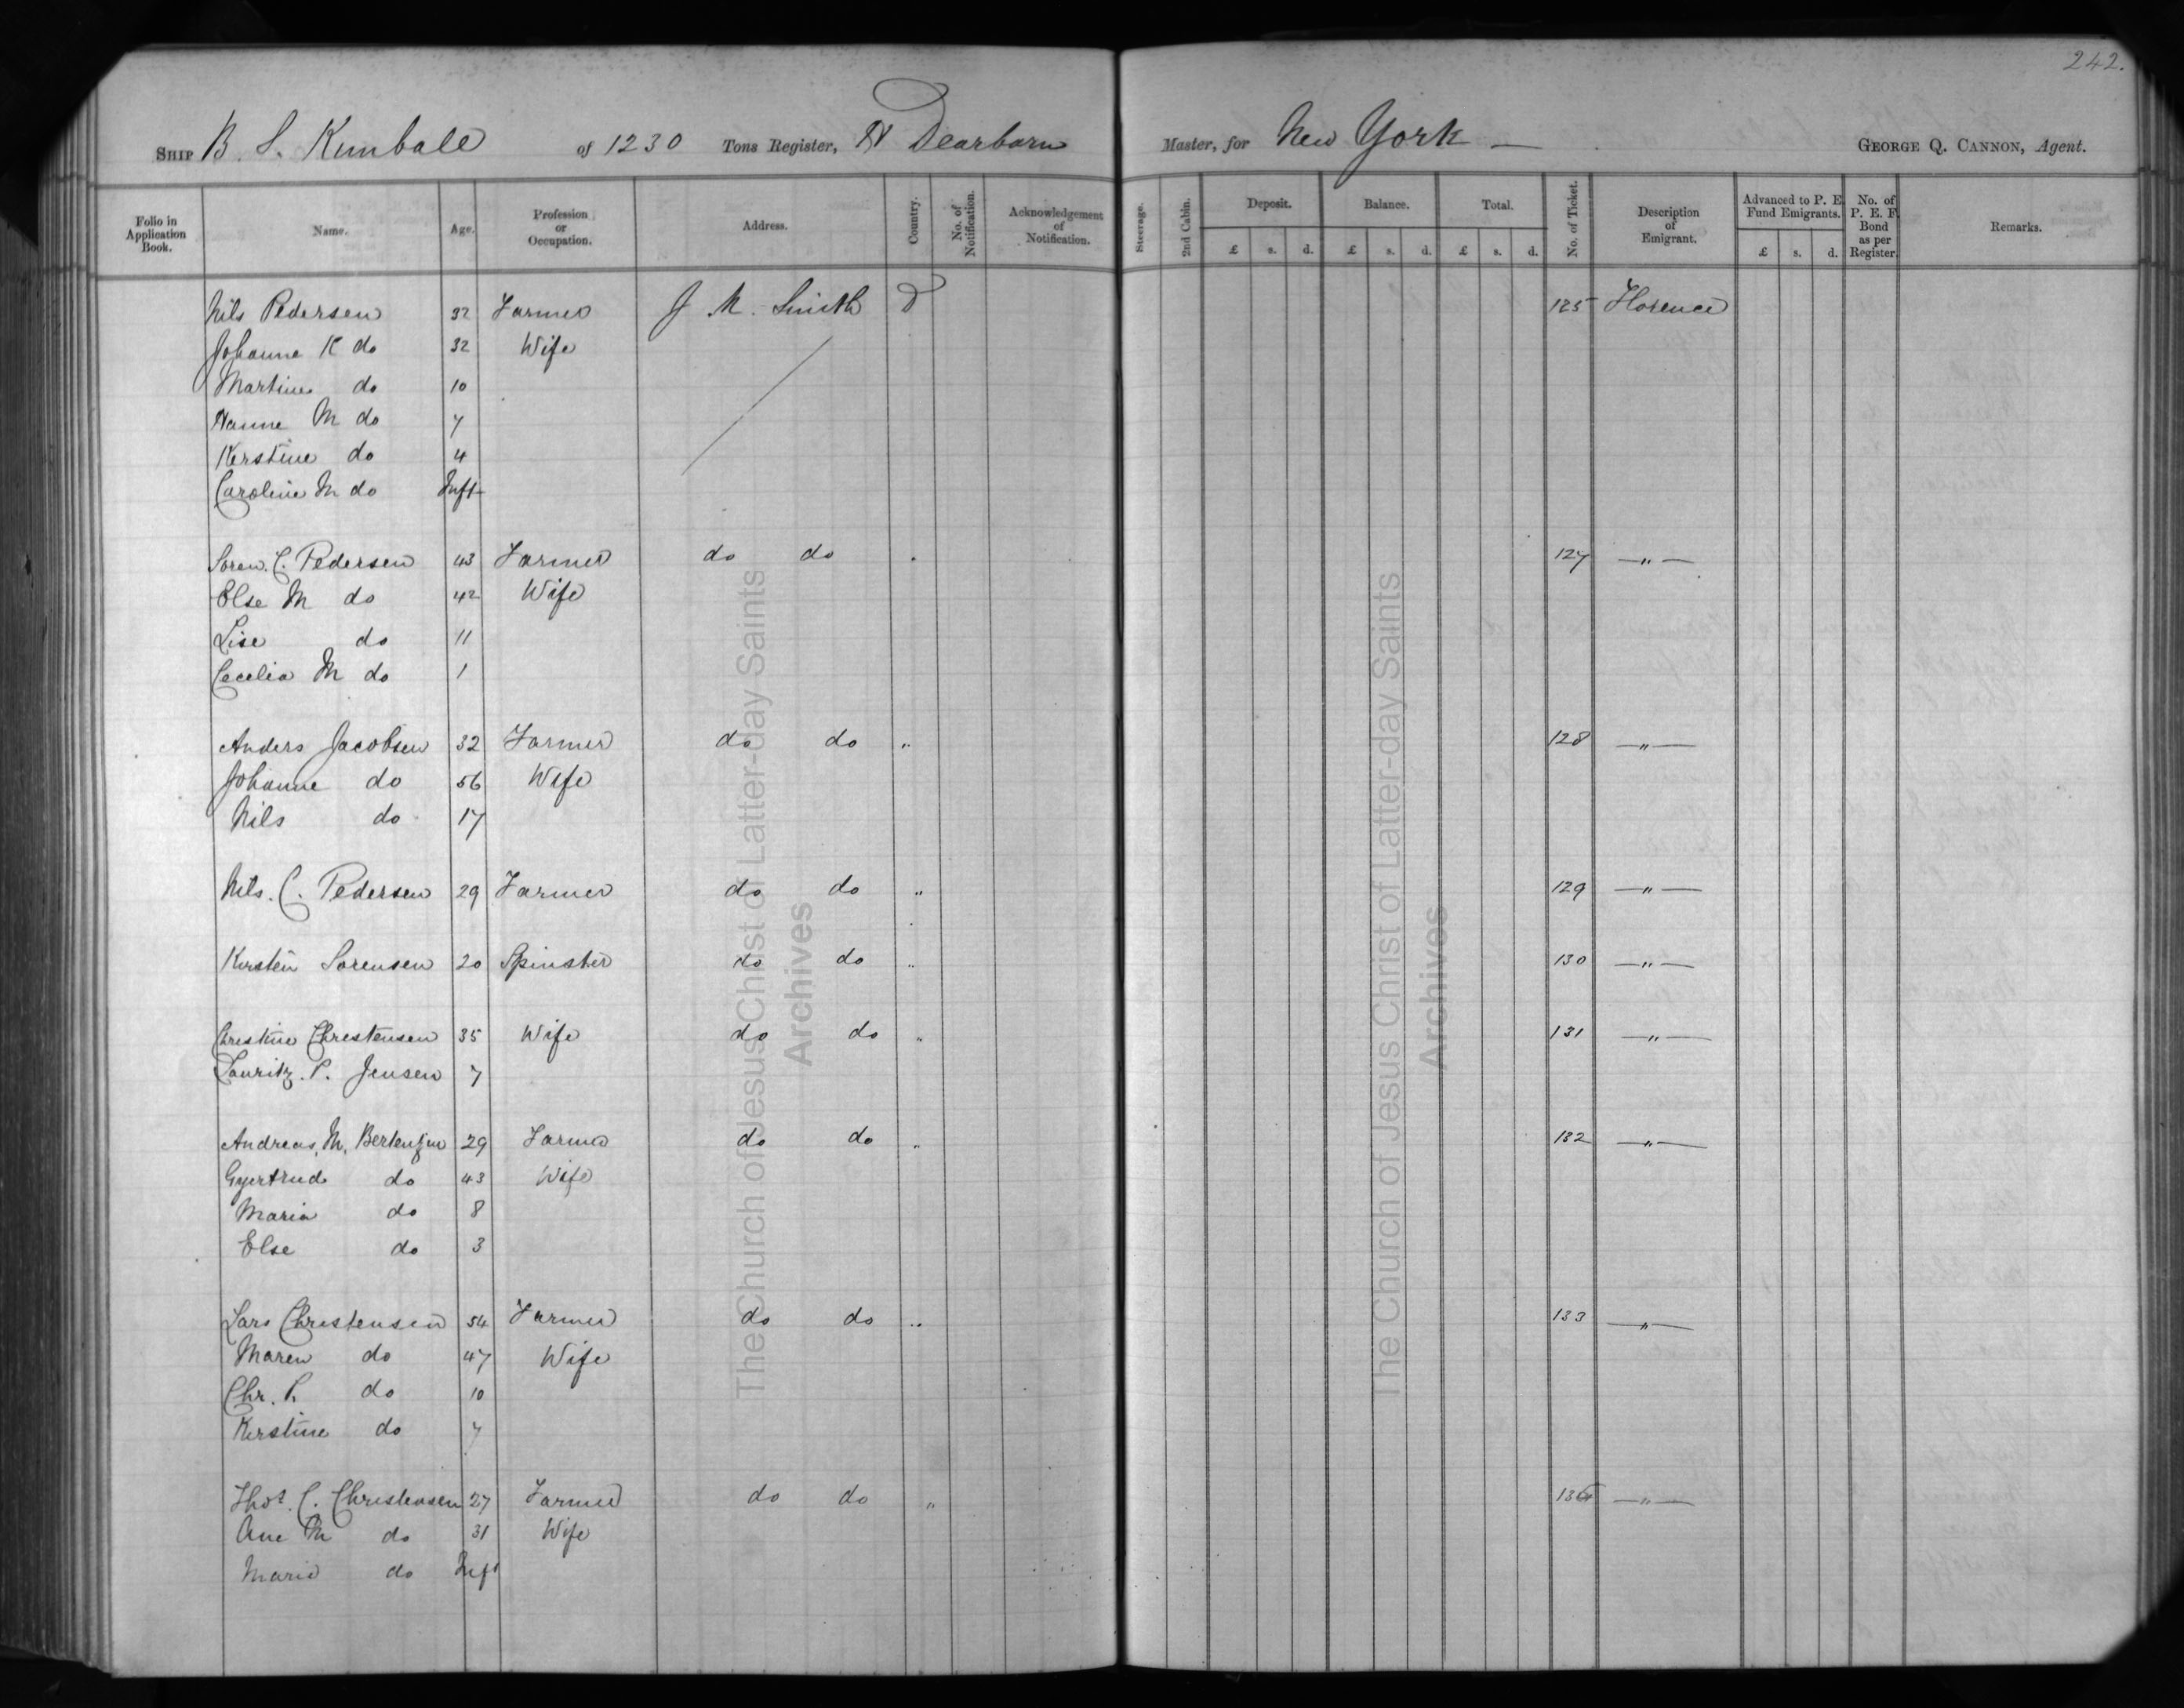 242.
SHIP B. S. Kimball of 1230 Tons Register, H Dearborn Master, for New York — GEORGE Q. CANNON, Agent.
Folio in Application Book. Name. Age. Profession or Occupation. Address. Country. No. of Notification. Acknowledgement of Notification. Steerage. 2nd Cabin. Deposit. Balance. Total. No. of Ticket. Description of Emigrant. Advanced to P. E. Fund Emigrants. No. of P. E. F. Bond as per Register. Remarks.
£ s. d. £ s. d. £ s. d. £ s. d.
Nils Pedersen 32 Farmer J. M. Smith D 125 Florence
Johanne K do 32 Wife
Martine do 10
Hanne M do 7
Kerstine do 4
Caroline M do Inft
Soren. C. Pedersen 43 Farmer do do 127 — " —
Else M do 42 Wife
Lise do 11
Cecelia M do 1
Anders Jacobsen 32 Farmer do do " 128 — " —
Johanne do 56 Wife
Nils do 17
Nils. C. Pedersen 29 Farmer do do " 129 — " —
Kersten Sorensen 20 Spinster do do " 130 — " —
Christine Christensen 35 Wife do do " 131 — " —
Lauritz. P. Jensen 7
Andreas, M, 29 Farmer do do " 132 — " —
Gjertrud do 43 Wife
Maria do 8
Else do 3
Lars Christensen 54 Farmer do do " 133 — " —
Maren do 47 Wife
Chr. P. do 10
Kerstine do 7
Thos. C. Christensen 27 Farmer do do " — " —
Ane M do 31 Wife
Marie do Inft
The Church of Jesus Christ of Latter-day Saints
Archives
The Church of Jesus Christ of Latter-day Saints
Archives